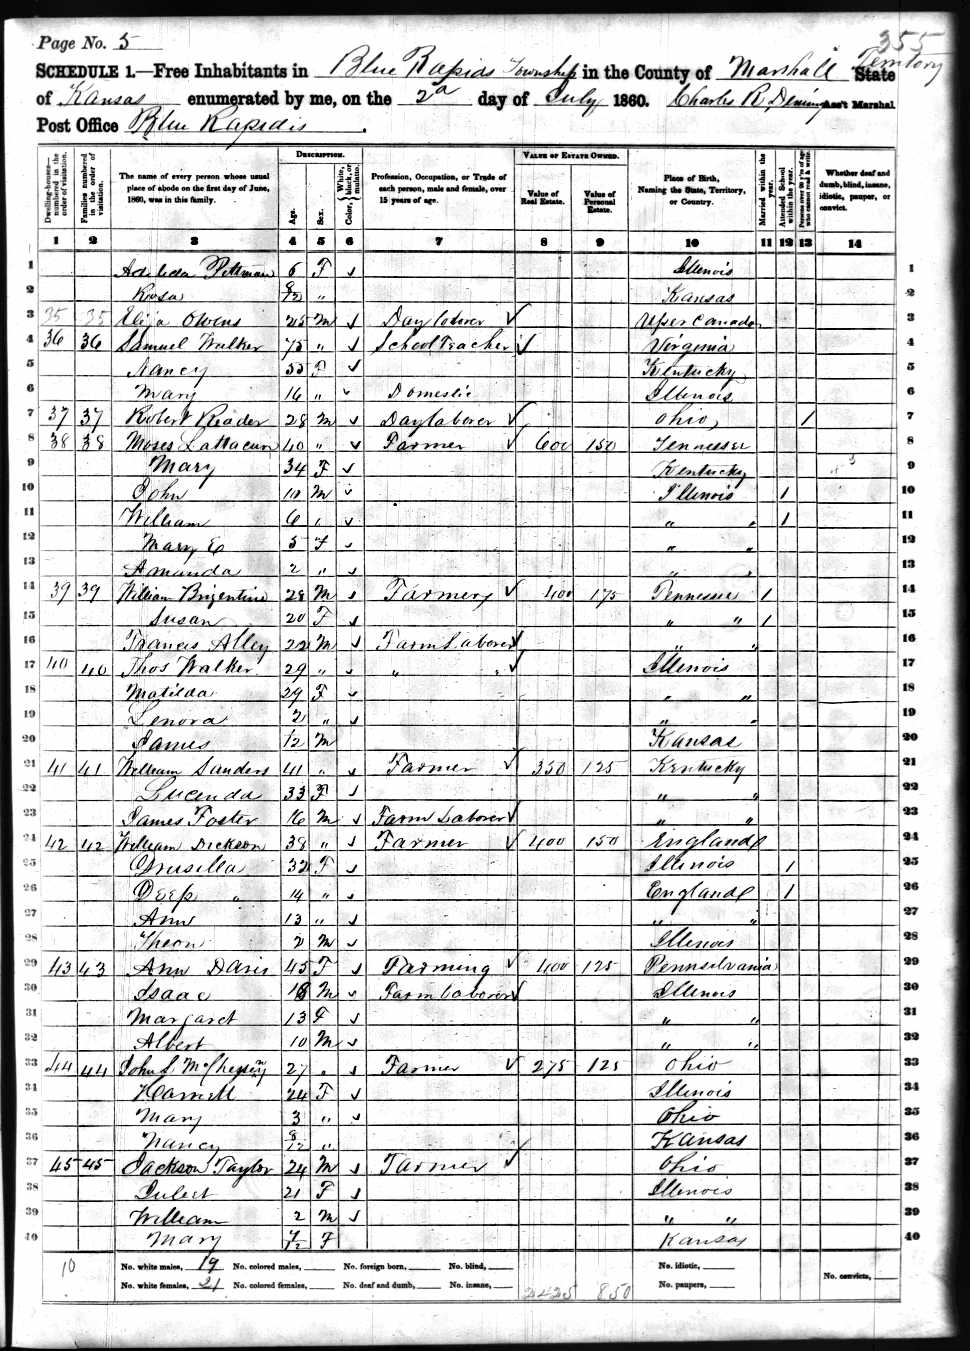 Page No. 5
355
SCHEDULE 1.—Free Inhabitants in Blue Rapids Township in the County of Marshall State Territory
of Kansas enumerated by me, on the 2d day of July 1860. Charles R. Deming Ass't Marshal
Post Office Blue Rapids.
DESCRIPTION. VALUE OF ESTATE OWNED.
Dwelling-houses—numbered in the order of visitation. Families numbered in the order of visitation. The name of every person whose usual place of abode on the first day of June, 1860, was in this family. Age. Sex. Color, White, black, or mulatto. Profession, Occupation, or Trade of each person, male and female, over 15 years of age. Value of Real Estate. Value of Personal Estate. Place of Birth, Naming the State, Territory, or Country. Married within the year. Attended School within the year. Persons over 20 y'rs of age who cannot read & write. Whether deaf and dumb, blind, insane, idiotic, pauper, or convict.
1 2 3 4 5 6 7 8 9 10 11 12 13 14
1 Pittman 6 F Illinois 1
2 Rosa 9/12 " Kansas 2
3 35 35 Owens 25 M Day laborer Uper Canada 3
4 36 36 Samuel Walker 75 " School Teacher Virginia 4
5 Nancy 55 F Kentucky 5
6 Mary 16 " Domestic Illinois 6
7 37 37 Robert Reader 28 M Day laborer Ohio 1 7
8 38 38 Moses 40 " Farmer 600 150 Tennessee 8
9 Mary 34 F Kentucky 9
10 John 10 M Illinois 1 10
11 William 6 " " " 1 11
12 Mary E 5 F " " 12
13 Amanda 2 " " " 13
14 39 39 William Brigentine 28 M Farmer 400 175 Tennessee 1 14
15 Susan 20 F " " 1 15
16 Francis Alley 22 M Farm Laborer " " 16
17 40 40 Thos Walker 29 " " " Illinois 17
18 Matilda 29 F " " 18
19 Lenora 2 " " " 19
20 James 1/12 M Kansas 20
21 41 41 William Sanders 41 " Farmer 350 125 Kentucky 21
22 Lucenda 33 F " " 22
23 James Foster 16 M Farm Laborer " " 23
24 42 42 William Dickson 38 " Farmer 400 150 England 24
25 Drusilla 32 F Illinois 1 25
26 " 14 " England 1 26
27 Ann 13 " " " 27
28 Theon 2 M Illinois 28
29 43 43 Ann Davis 45 F Farming 400 125 Pennsilvania 29
30 Isaac 18 M Farm laborer Illinois 30
31 Margaret 13 F " " 31
32 Albert 10 M " " 32
33 44 44 John S 27 " Farmer 275 125 Ohio 33
34 24 F Illinois 34
35 Mary 3 " Ohio 35
36 Nancy 9/12 " Kansas 36
37 45 45 Jackson Taylor 24 M Farmer Ohio 37
38 21 F Illinois 38
39 William 2 M " " 39
40 Mary 7/12 F Kansas 40
10 No. white males, 19 No. colored males, No. foreign born, No. blind, No. idiotic,
No. white females, 21 No. colored females, No. deaf and dumb, No. insane, 2425 850 No. paupers, No. convicts,